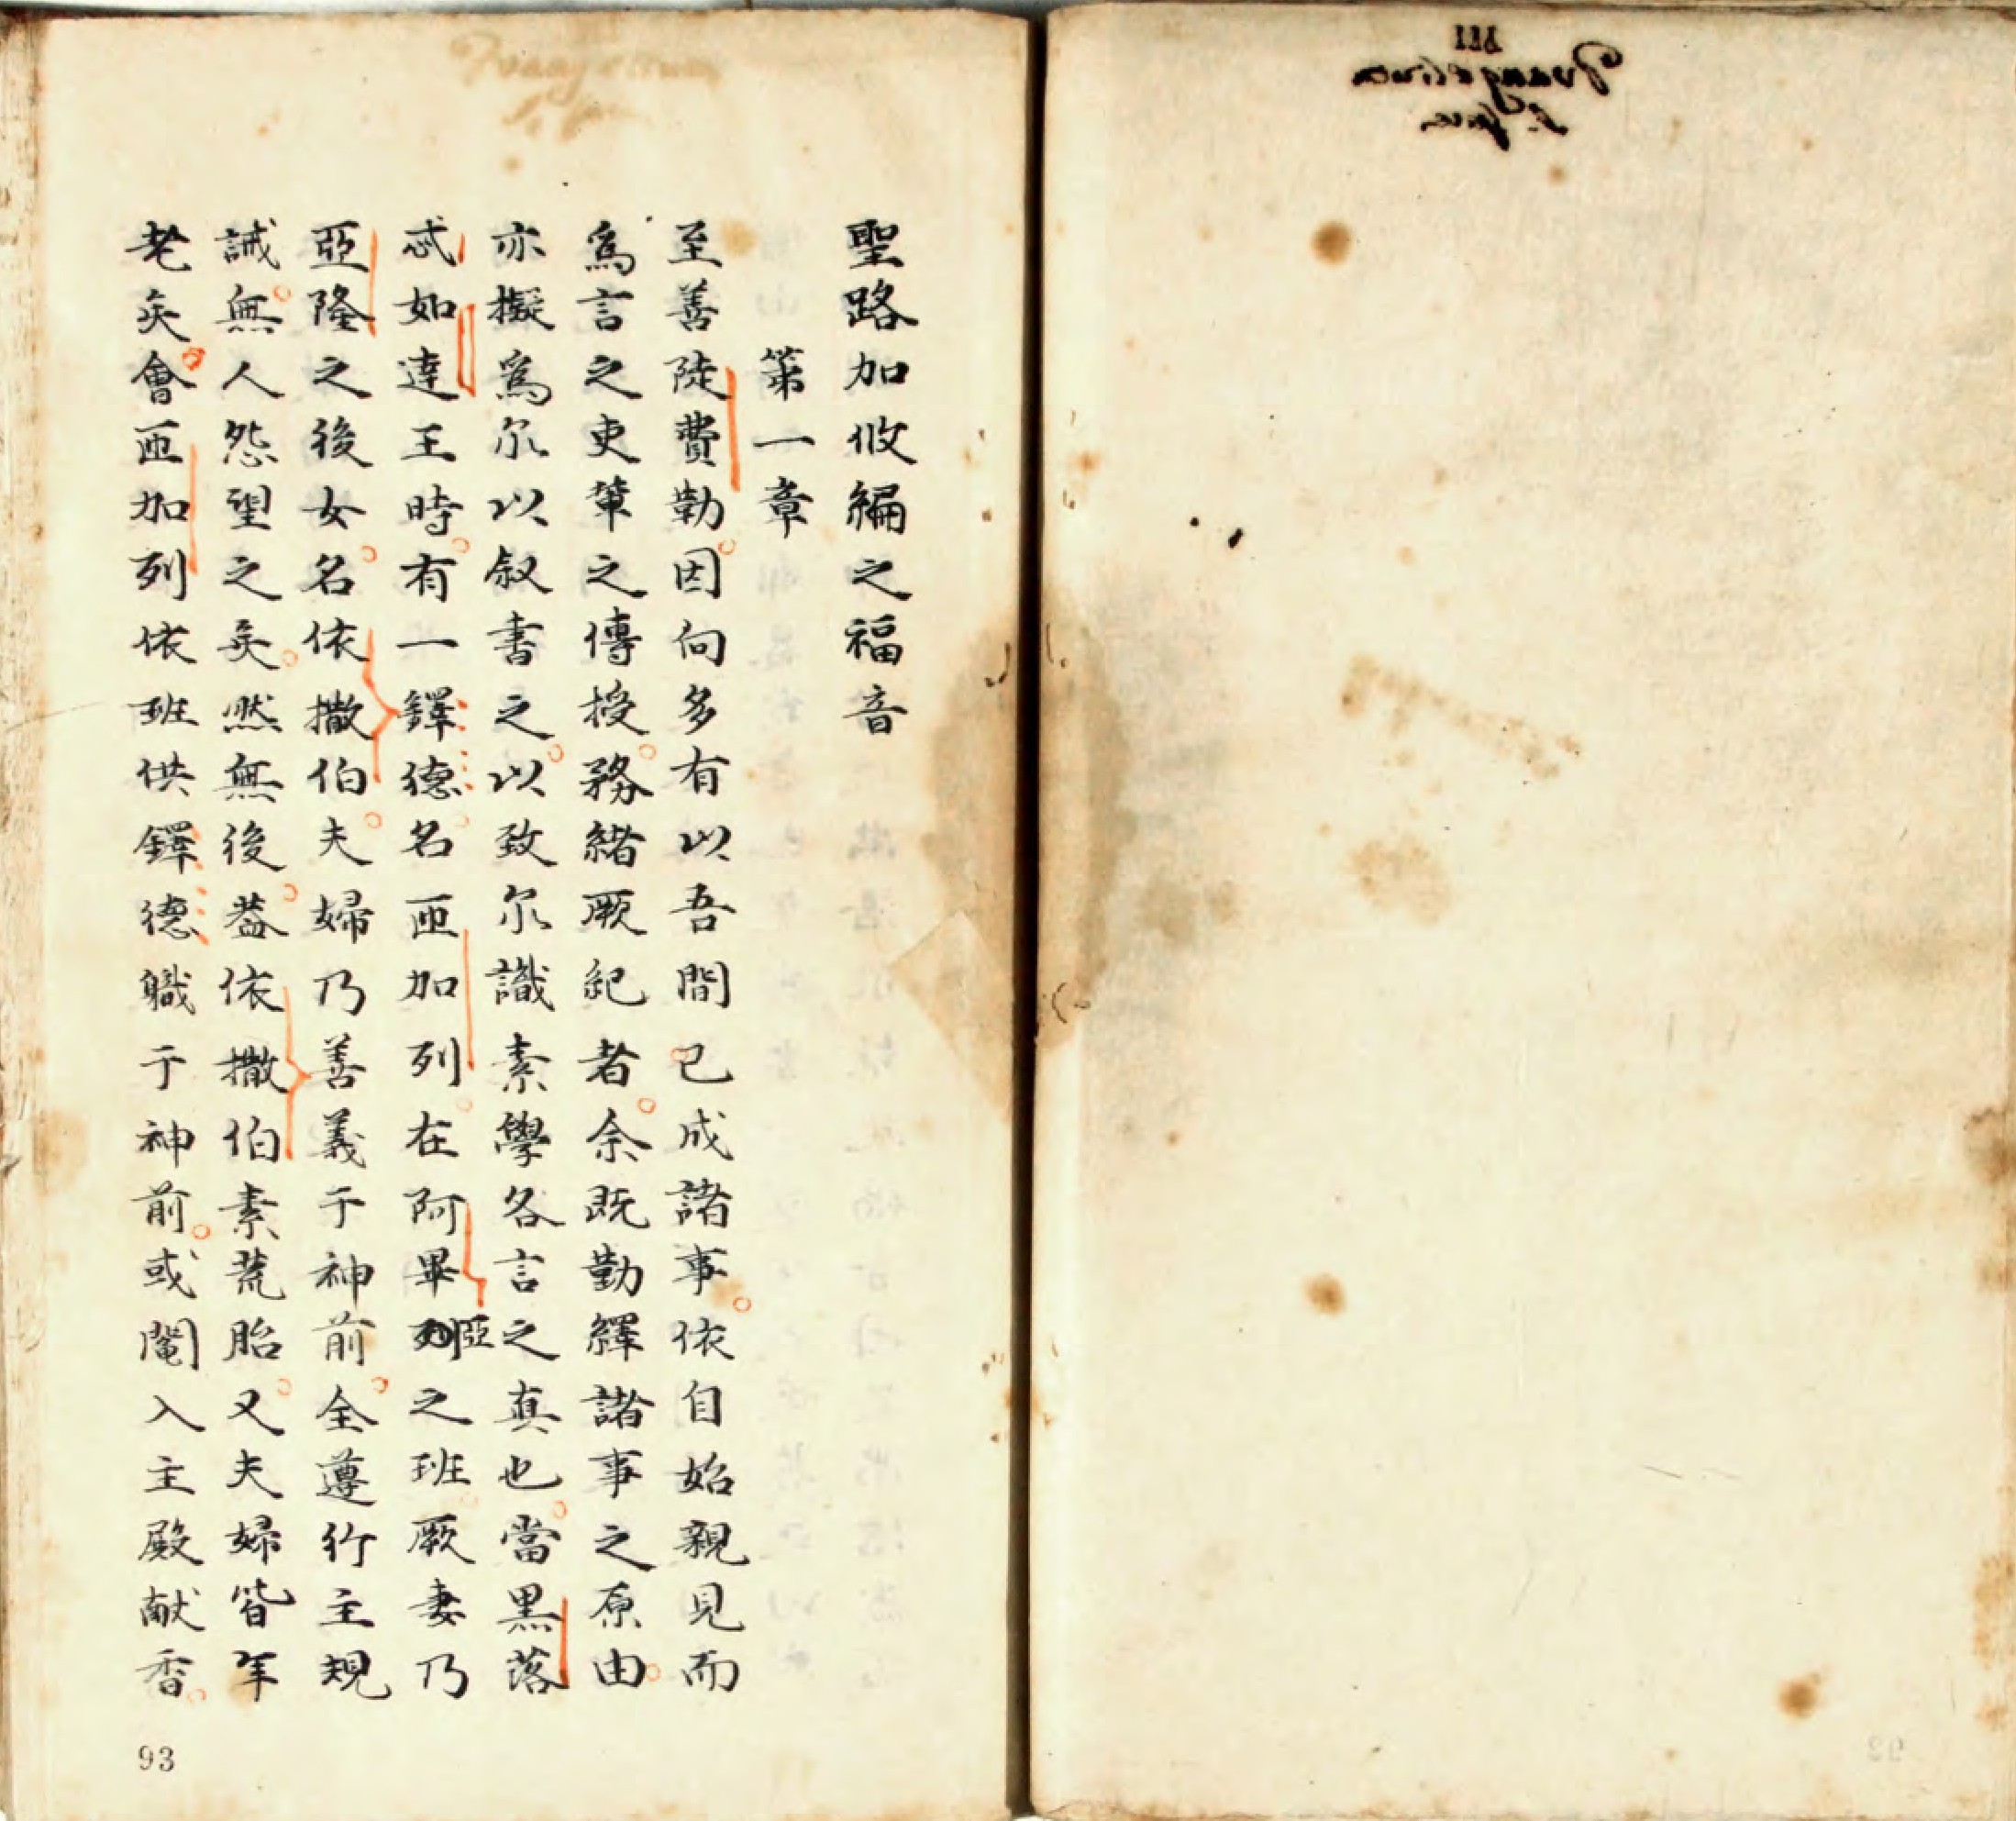 聖路加攸編之福音
第一章
至善陡費勒因向多有以吾間已成諸事依自始親見而
為言之吏輩之傳授務緒厥紀者余既勤繹諸事之原由
亦擬為尔以叙書之以致尔識素學各言之真也當黒落
忒如達王時有一鐸德名匝加列在阿畢亞之班厥妻乃
亞隆之後女名依撒伯夫婦乃善義于神前全遵行主規
誡無人怨望之矣然無後葢依撒伯素荒胎又夫婦皆年
老矣會匝加列依班供鐸德職于神前或鬮入主殿献香
93
III
Evangelium
92